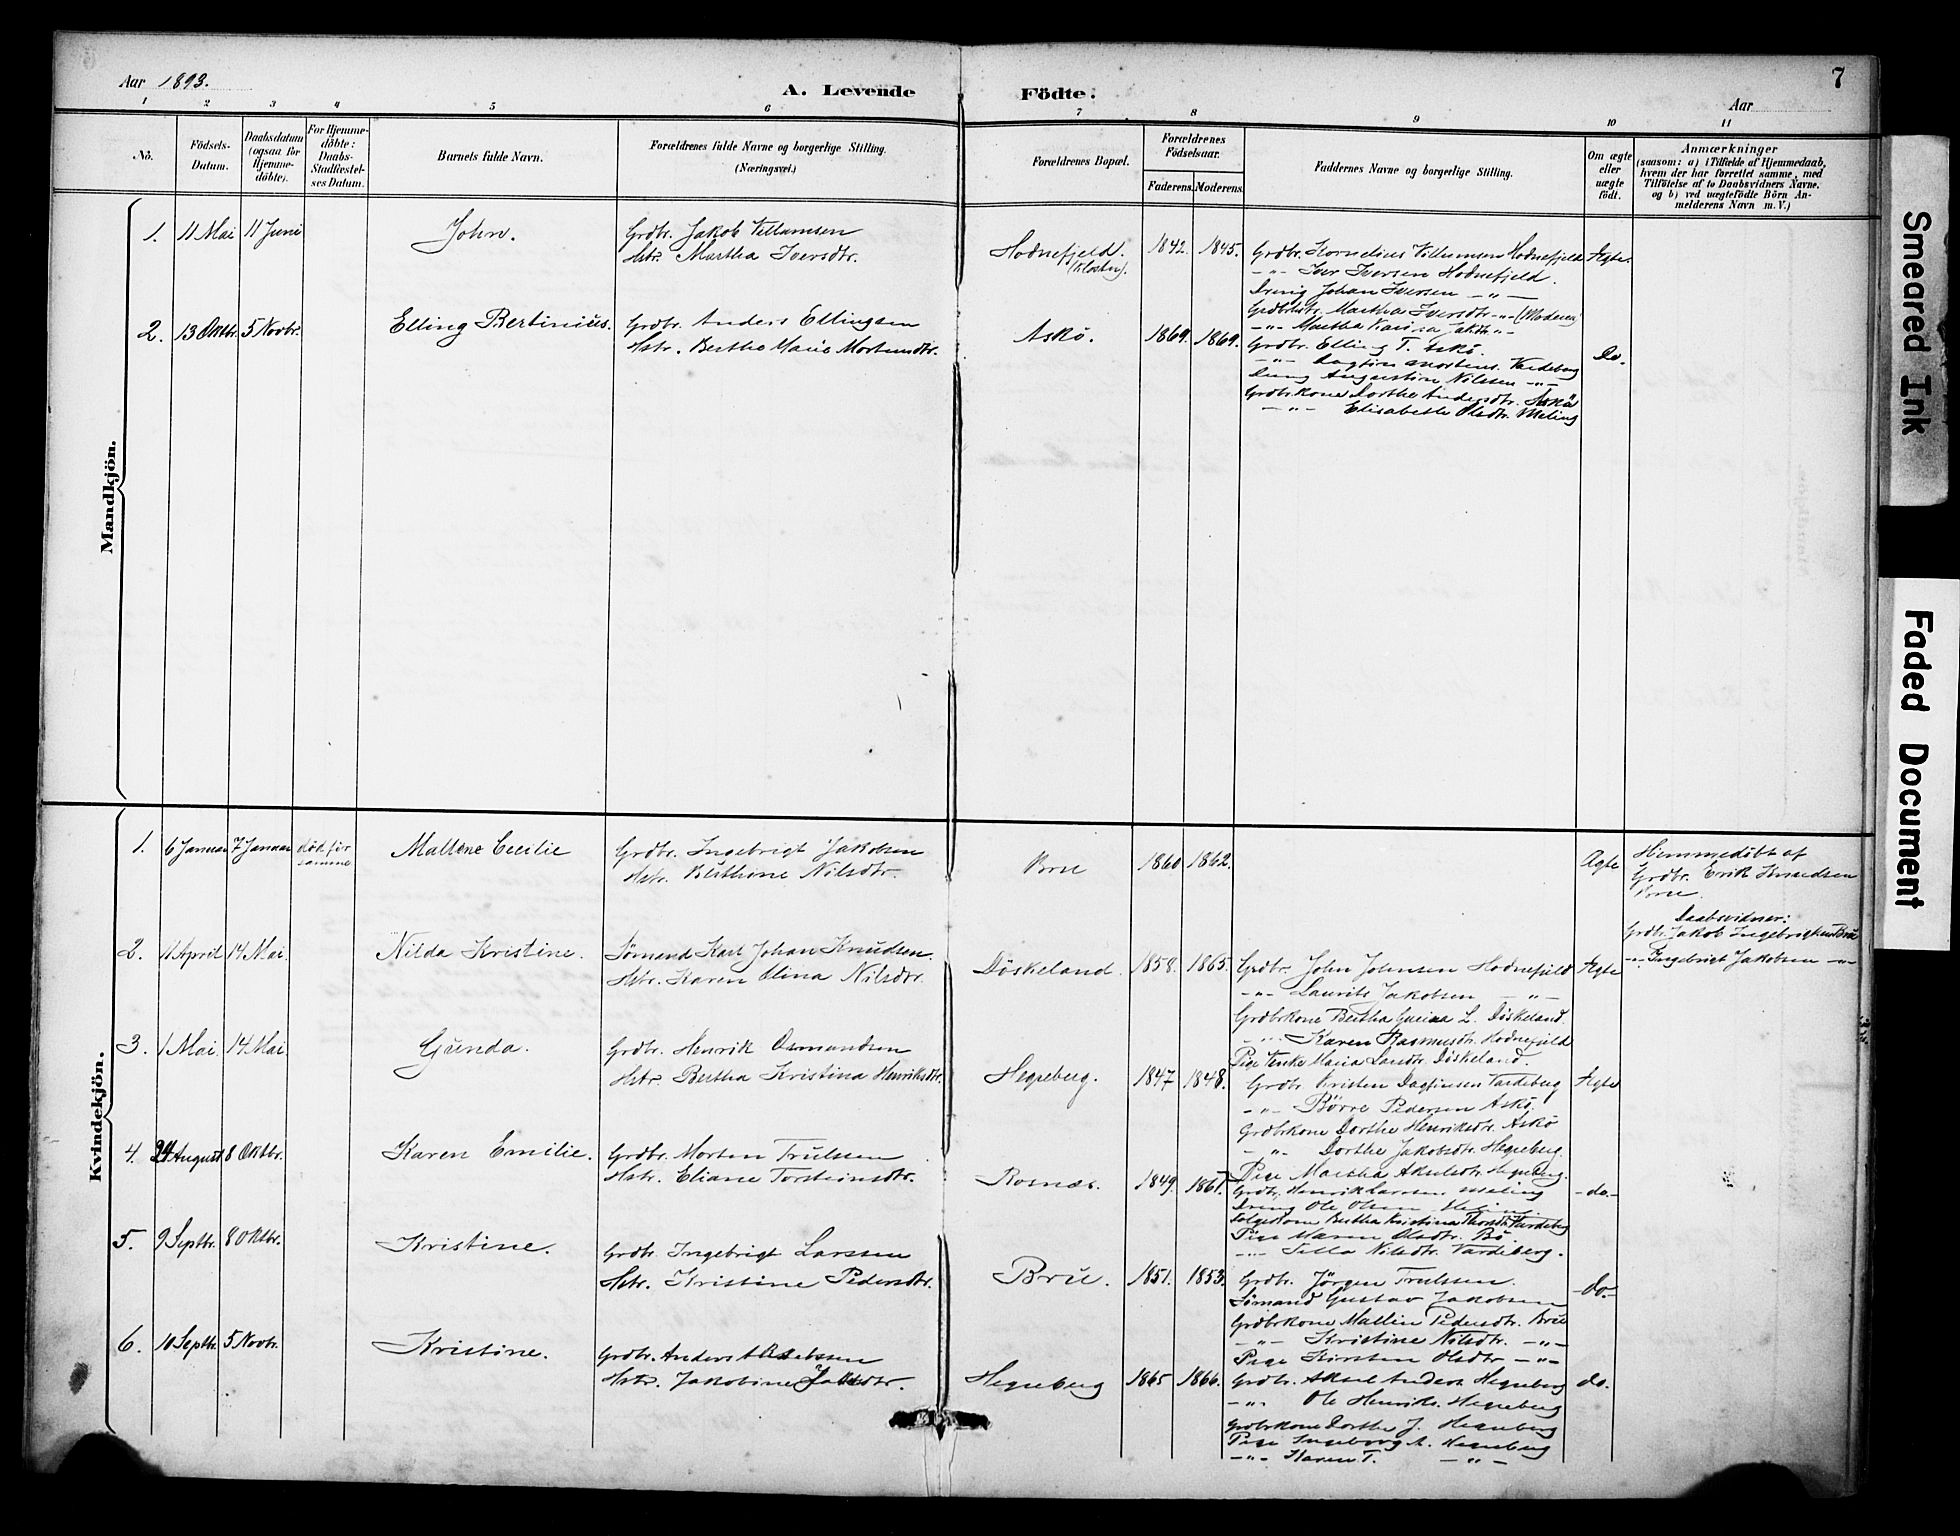 Aar 1893.
A. Levende Födte.
7
Aar
1 2 3 4 5 6 7 8 9 10 11
No.
Födsels-Datum.
Daabsdatum (ogsaa for Hjemme-döbte).
For Hjemme-döbte: Daabs-Stadfæstel-ses Datum.
Barnets fulde Navn.
Forældrenes fulde Navne og borgerlige Stilling.
(Næringsvei.)
Forældrenes Bopæl.
Forældrenes Födselsaar.
Faderens. Moderens.
Faddernes Navne og borgerlige Stilling.
Om ægte eller uægte födt.
Anmærkninger
(saasom: a) i Tilfælde af Hjemmedaab,
hvem der har forrettet samme, med
Tilföielse af to Daabsvidners Navne,
og b) ved uægtefödte Börn An-
melderens Navn m. V.)
Mandkjön.
1. 11 Mai 11 Juni John. Grdbr. Jakob Villumsen
Hstr. Martha Iversdtr.
Hodnefjeld. (Kloster). 1842. 1845. Ægte.
Grdbr. Kornelius Villumsen Hodnefjeld
-"- Iver Iversen Hodnefjeld.
Dreng Johan Iversen -"-
Grdbrhstr. Martha Iversdtr -"- (Moderen)
-"- Martha Karina Jakdtr -"-
2. 13 Oktbr. 5 Novbr. Elling Bertinius. Grdbr. Anders Ellingsen
Hstr. Berthe Marie Mortensdtr.
Askö. 1869. 1869. Do.
Grdbr. Elling T. Askö.
-"- Dagfin Mortens. Vardeberg
Dreng Augustin Nilsen -"-
Grdbrkone Dorthe Andersdtr. Askö
-"- Elisabeth Olsdtr. Meling
Kvindekjön.
1. 6 Januar 7 Januar död før samme Mallene Cecilie Grdbr. Ingebrigt Jakobsen
Hstr. Berthine Nilsdtr.
Brue 1860 1862. Ægte
Hjemmedöbt af
Grdbr. Erik Knudsen
Brue.
Daabsvidner:
Grdbr. Jakob Ingebrigtsen Brue
-"- Ingebrigt Jakobsen -"-
2. 11 April 14 Mai. Nilda Kristine. Sömand Karl Johan Knudsen.
Hstr. Karen Olina Nilsdtr.
Döskeland. 1858. 1865. Ægte
Grdbr. John Johnsen Hodnefjeld
-"- Laurits Jakobsen -"-
Grdbrkone Bertha Gurina L. Döskeland.
-"- Karen Rasmusdtr. Hodnefjeld
Pige Tenke Maria Larsdtr. Döskeland.
3. 1 Mai. 14 Mai. Gunda. Grdbr. Henrik Osmundsen
Hstr. Bertha Kristina Henriksdtr.
Hegreberg. 1847 1848. Ægte
Grdbr. Kristen Dagfinsen Vardeberg
-"- Börre Pedersen Askö.
Grdbrkone Dorthe Henriksdtr. Askö
-"- Dorthe Jakobsdtr. Hegreberg.
Pige Martha Akselsdtr. Hegreberg.
4. 24 August 8 Oktbr. Karen Emilie. Grdbr. Morten Trulssen
Hstr. Eliane Torsteinsdtr.
Rosnæs. 1849. 1867. -do-
Grdbr. Henrik Larssen Meling
Dreng Ole Olsen
Folgekone Bertha Kristina Thorsdtr. Vardeberg
Pige Maren Olsdtr. Bö.
-"- Silla Nilsdtr. Vardeberg.
5. 9 Septbr. 8 Oktbr. Kristine. Grdbr. Ingebrigt Larssen
Hstr. Kristine Pedersdtr.
Brue. 1851. 1853. do.
Grdbr. Jörgen Trulssen.
Sömand Gustav Jakobsen
Grdbrkone Mallin Pedersdtr. Brue
-"- Kristine Nilsdtr. -"-
Pige Kirsten Olsdtr -"-
6. 10 Septbr. 5 Novbr. Kristine. Grdbr. Anders Akselssen
Hstr. Jakobine Jakdtr.
Hegreberg 1865 1866. do.
Grdbr. Aksel Anders. Hegreberg
-"- Ole Henriks. Hegreberg
Grdbrkone Dorthe J. Hegreberg
Pige Ingeborg A. Hegreberg
-"- Karen T. -"-
Smeared Ink
Faded Document